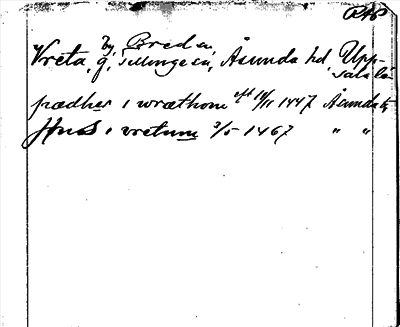 by, Breda,
Vreta, g, Tillinge sn, Åsunda hd, Upp-
sala l.
pædher i wræthom oft 18/11 1447 Åsunda h,
Jþns i vretum 3/5 1467 " "